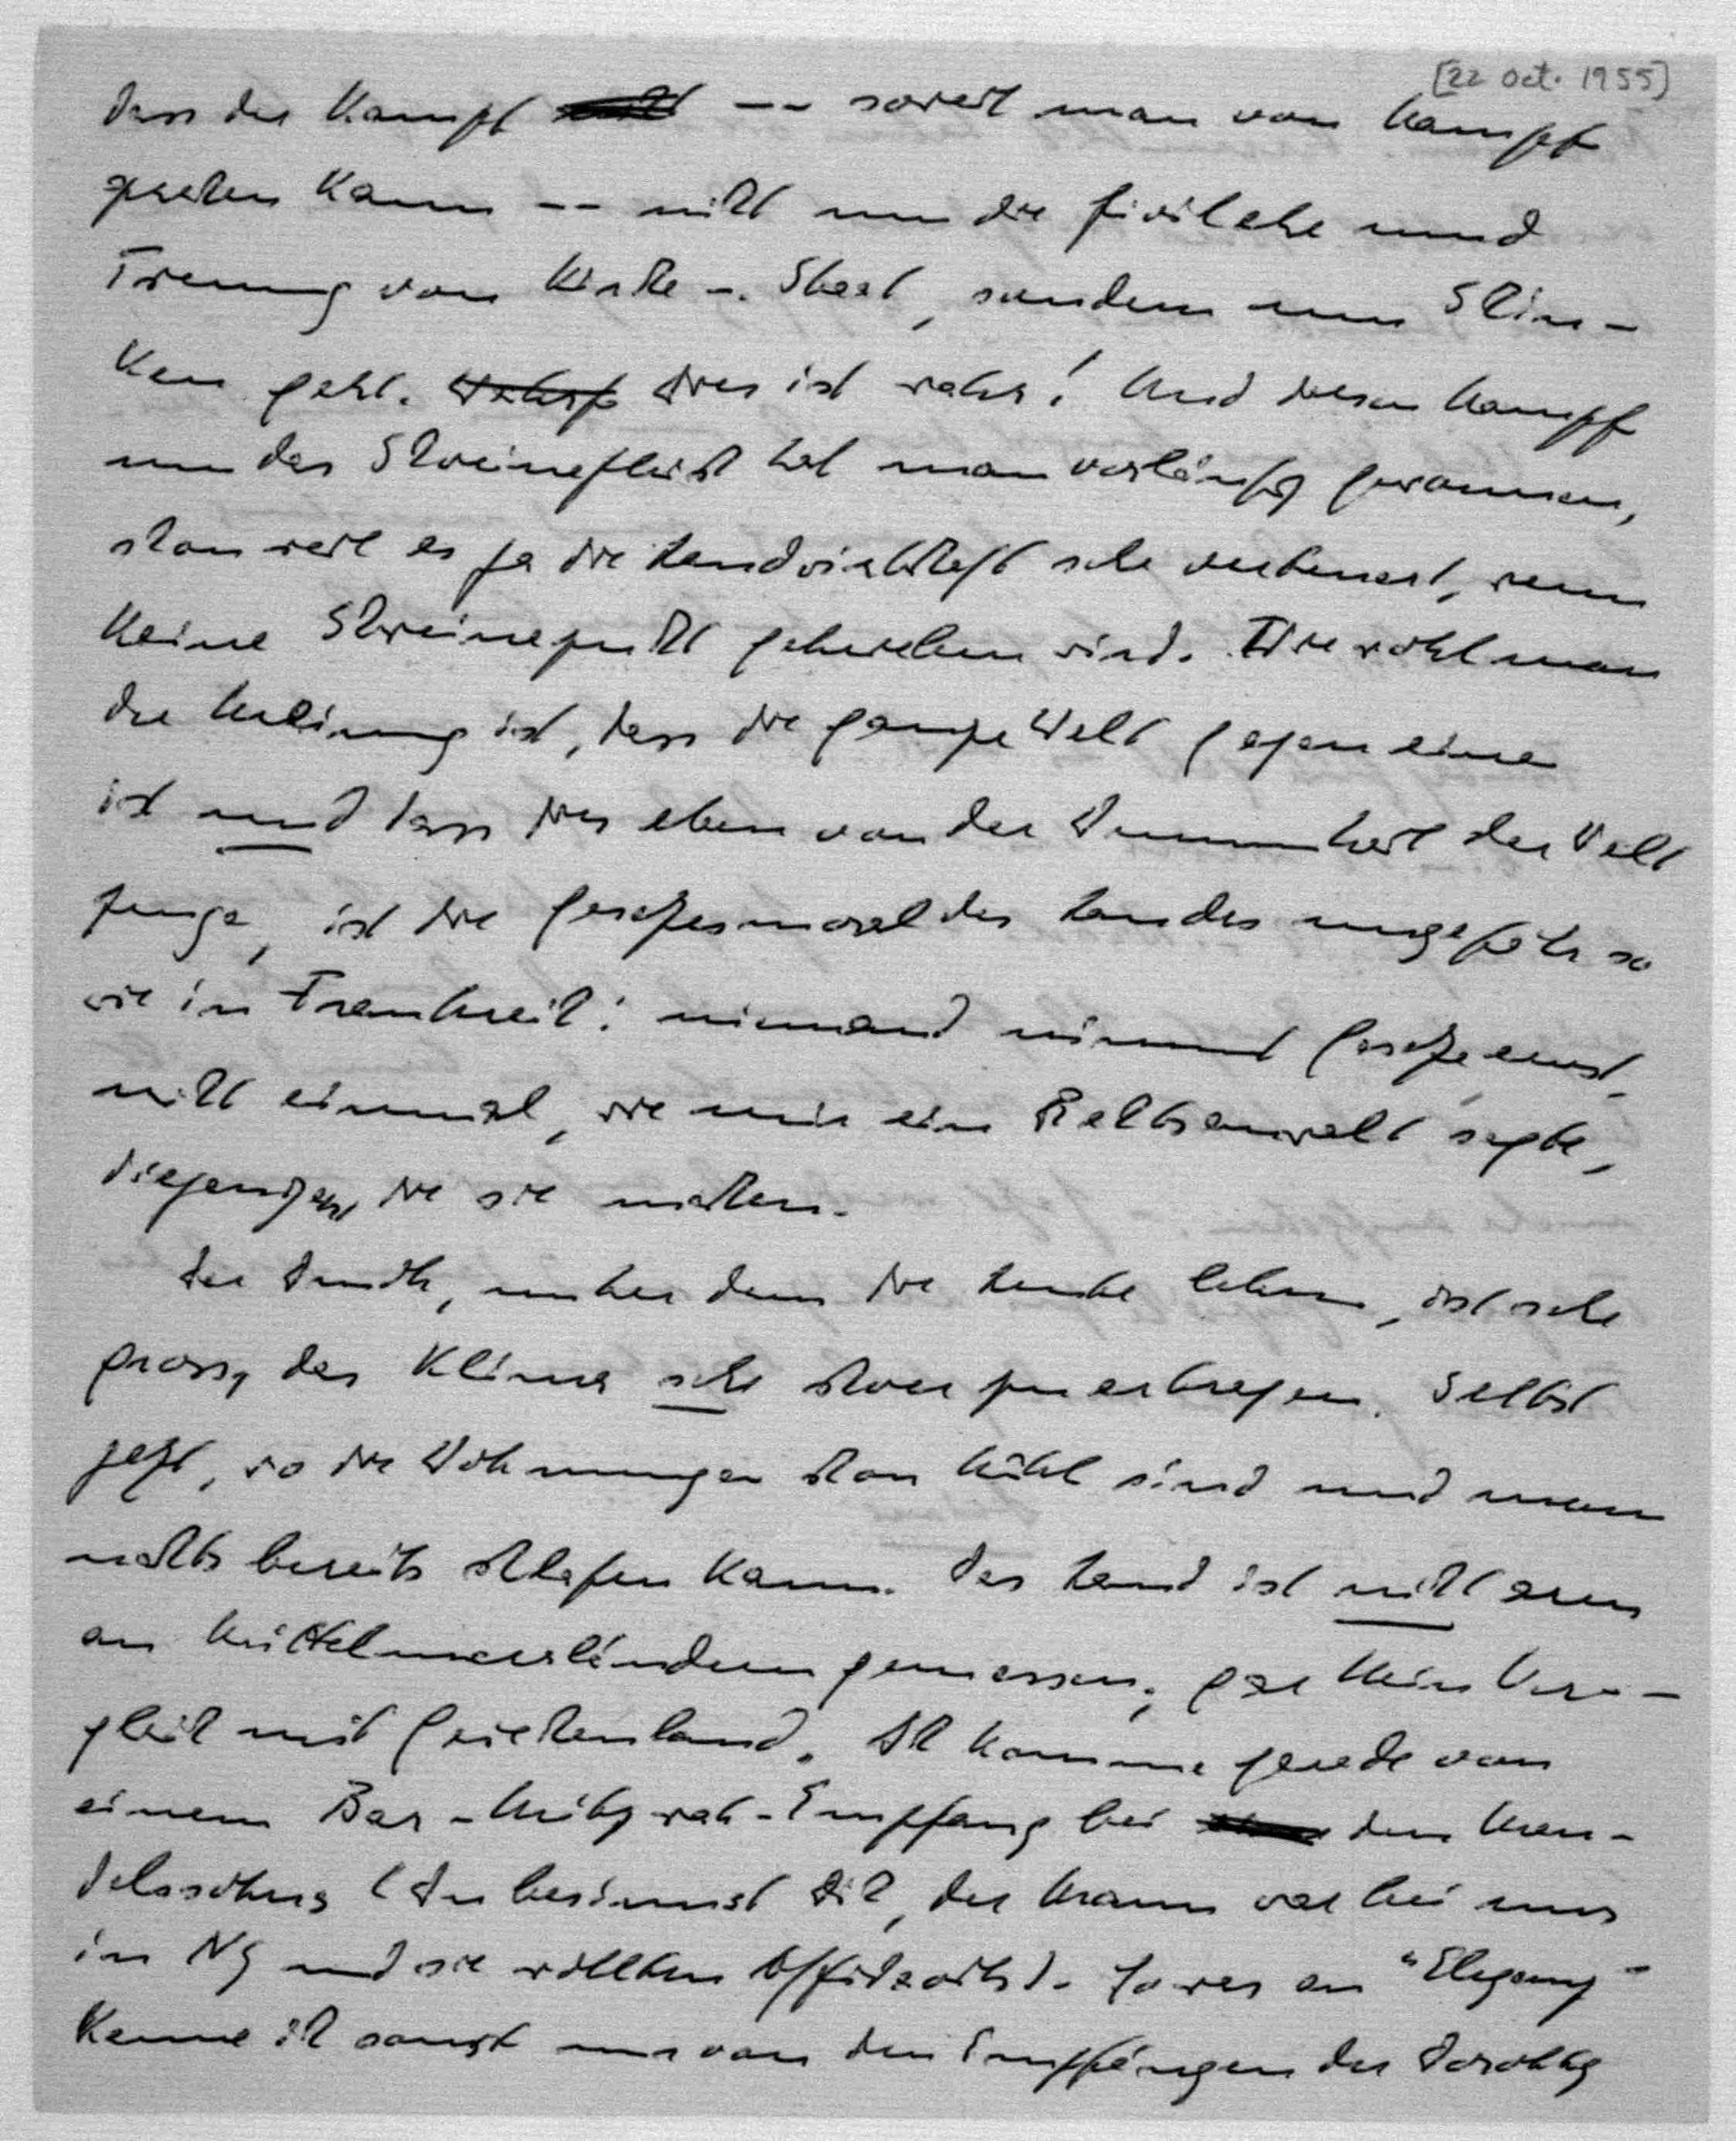 [22 Oct. 1955]
dass der Kampf -- soweit man von Kampf
sprechen kann -- nicht um die Zivilehe und
Trennung von Kirche u. Staat, sondern um Schin-
ken geht. Dies ist wahr! Und diesen Kampf
um das Schweinefleisch hat man vorläufig gewonnen,
schon weil es ja die Landwirtschaft sehr verteuert, wenn
keine Schweinezucht getrieben wird. Da wohl man
der Meinung ist, dass die ganze Welt gegen einen
ist und dass dies eben von der Dummheit der Welt
zeuge, ist die Gesetzesmoral des Landes ungefähr so
wie in Frankreich: niemand nimmt Gesetze ernst,
nicht einmal, wie mir ein Rechtsanwalt sagte,
diejenigen, die sie machen.
Der Druck, unter dem die Leute leben, ist sehr
gross, das Klima sehr schwer zu ertragen. Selbst
jetzt, wo die Wohnungen schon kühl sind und man
nachts bereits schlafen kann. Das Land ist nicht arm
an Mittelmeerländern gemessen; gar kein Ver-
gleich mit Griechenland. Ich komme gerade von
einem Bar-Mitzwah-Empfang bei den Men-
delssohns (Du besinnst Dich, der Mann war bei uns
in NY und sie wollten Affidavits). So was an "Eleganz"
kenne ich sonst nur von den Empfängen der Dorothy